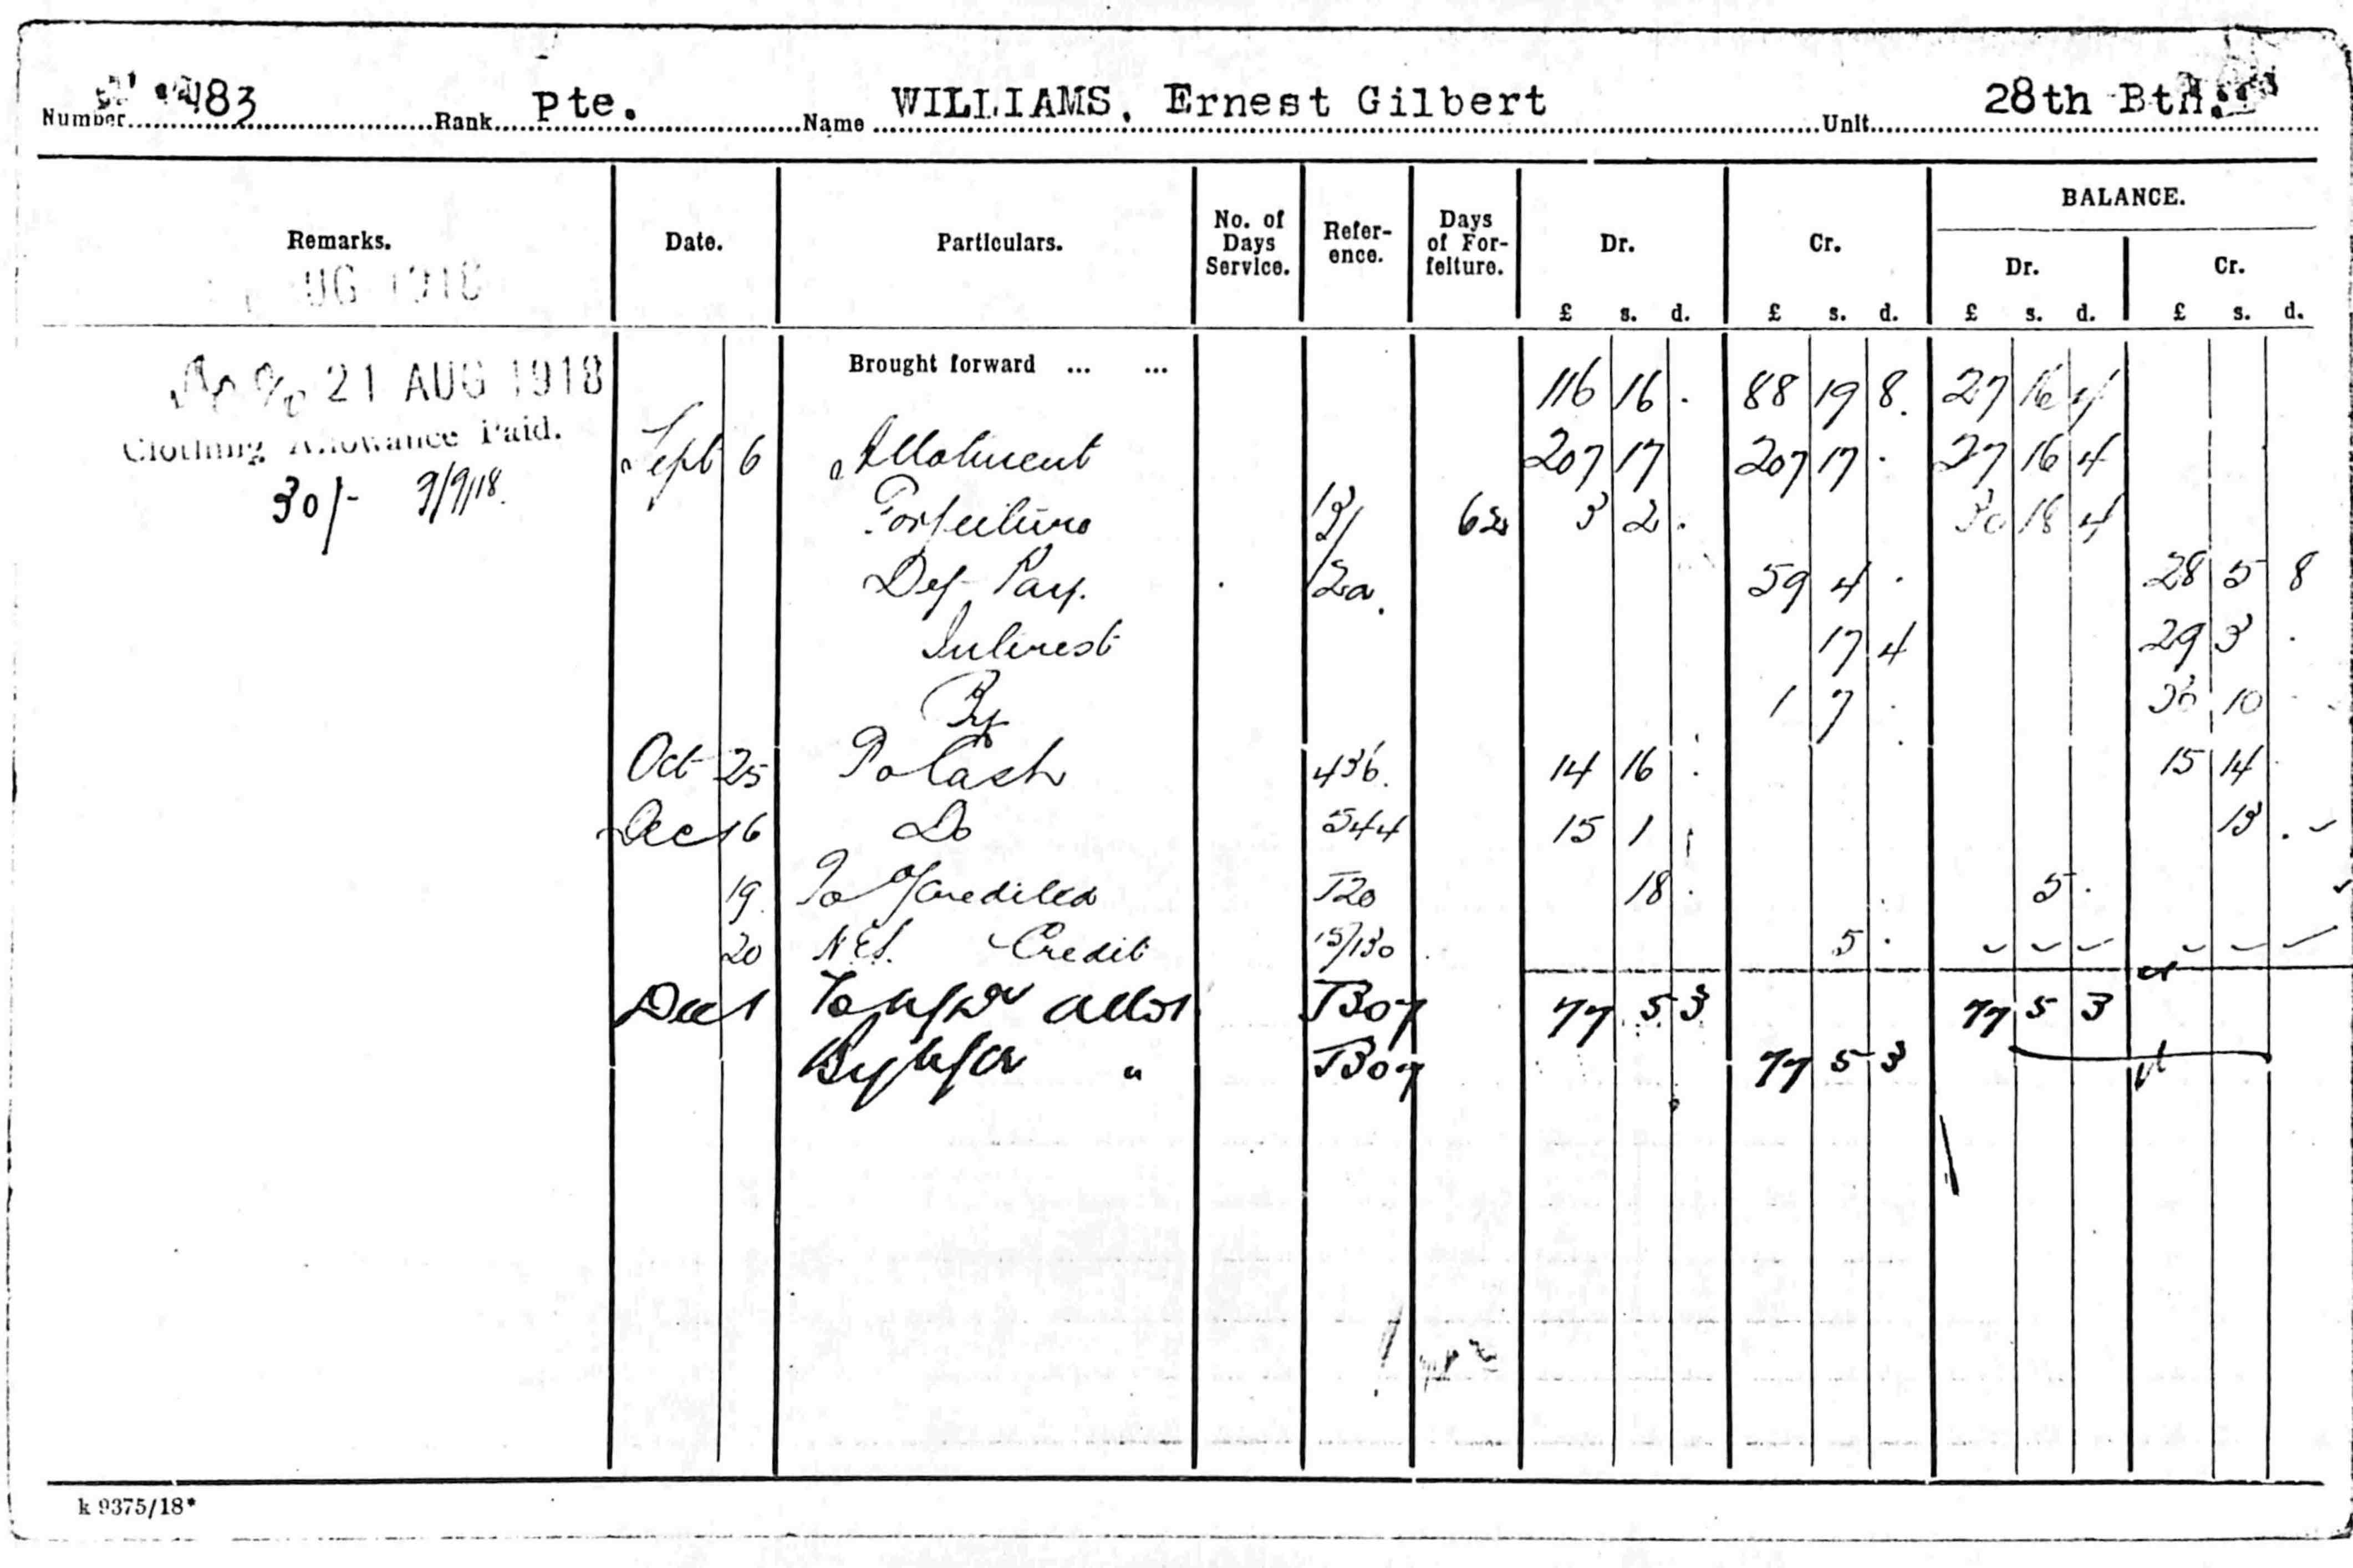 Number 483 Rank Pte. Name WILLIAMS, Ernest Gilbert Unit 28th Btn.
Remarks. Date. Particulars. No. of Days Service. Refer-ence. Days of For-feiture. Dr. Cr. BALANCE. Dr. Cr.
£ s. d. £ s. d. £ s. d. £ s. d.
UG 1918
21 AUG 1918
Clothing Allowance Paid.
30/- 9/9/18.
Brought forward ... ... 116 16 . 88 19 8. 27 16 4
Sept 6 Allotment 207 17 207 17 . 27 16 4
Forfeiture 62 3 2 . 30 18 4
Def Pay. 59 4 . 28 5 8
Interest 17 4 29 3 .
By 1 7 . 30 10
Oct 25 To Cash 436. 14 16 . 15 14
Dec 16 Do 544 15 1 13 .
19. To credited T20 18 . 5 .
20 Credit 15/130 5 .
Dec 1 To allot T307 77 5 3 77 5 3
By " T307 77 5 3
k 9375/18*